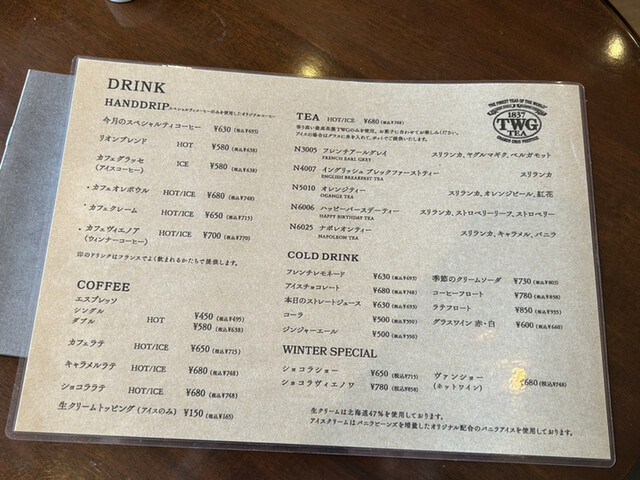 DRINK
HANDDRIP スペシャルティコーヒーのみを使用したオリジナルコーヒー
今月のスペシャルティコーヒー ¥630 (税込¥693)
リオンブレンド HOT ¥580 (税込¥638)
カフェグラッセ ICE ¥580 (税込¥638)
(アイスコーヒー)
・カフェオレボウル HOT/ICE ¥680 (税込¥748)
・カフェクレーム HOT/ICE ¥650 (税込¥715)
・カフェヴィエノア HOT/ICE ¥700 (税込¥770)
(ウィンナーコーヒー)
印のドリンクはフランスでよく飲まれるかたちで提供します。
COFFEE
エスプレッソ
シングル HOT ¥450 (税込¥495)
ダブル ¥580 (税込¥638)
カフェラテ HOT/ICE ¥650 (税込¥715)
キャラメルラテ HOT/ICE ¥680 (税込¥748)
ショコララテ HOT/ICE ¥680 (税込¥748)
生クリームトッピング (アイスのみ) ¥150 (税込¥165)
THE FINEST TEAS OF THE WORLD
1837
TWG
TEA
TEA HOT/ICE ¥680 (税込¥748)
香り高い最高茶葉TWGのみを使用。お菓子に合わせてお楽しみください。
アイスの場合はグラスに氷を入れて、ポットでご提供いたします。
N3005 フレンチアールグレイ スリランカ、ヤグルマギク、ベルガモット
FRENCH EARL GREY
N4007 イングリッシュ ブレックファーストティー スリランカ
ENGLISH BREAKFAST TEA
N5010 オレンジティー スリランカ、オレンジピール、紅花
OGANGE TEA
N6006 ハッピーバースデーティー スリランカ、ストロベリーリーフ、ストロベリー
HAPPY BIRTHDAY TEA
N6025 ナポレオンティー スリランカ、キャラメル、バニラ
NAPOLEON TEA
COLD DRINK
フレンチレモネード ¥630 (税込¥693) 季節のクリームソーダ ¥730 (税込¥803)
アイスチョコレート ¥680 (税込¥748) コーヒーフロート ¥780 (税込¥858)
本日のストレートジュース ¥630 (税込¥693) ラテフロート ¥850 (税込¥935)
コーラ ¥500 (税込¥550) グラスワイン 赤・白 ¥600 (税込¥660)
ジンジャーエール ¥500 (税込¥550)
WINTER SPECIAL
ショコラショー ¥650 (税込¥715) ヴァンショー ¥680 (税込¥748)
ショコラヴィエノワ ¥780 (税込¥858) (ホットワイン)
生クリームは北海道47%を使用しております。
アイスクリームはバニラビーンズを増量したオリジナル配合のバニラアイスを使用しております。